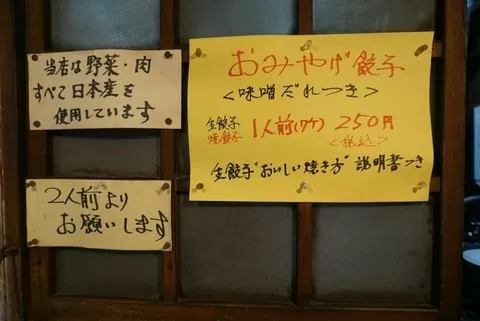 当店は野菜・肉
すべて日本産を
使用しています
2人前より
お願いします
おみやげ餃子
<味噌だれつき>
生餃子
焼餃子
1人前(7ケ) 250円
<税込>
生餃子"おいしい焼き方"説明書つき